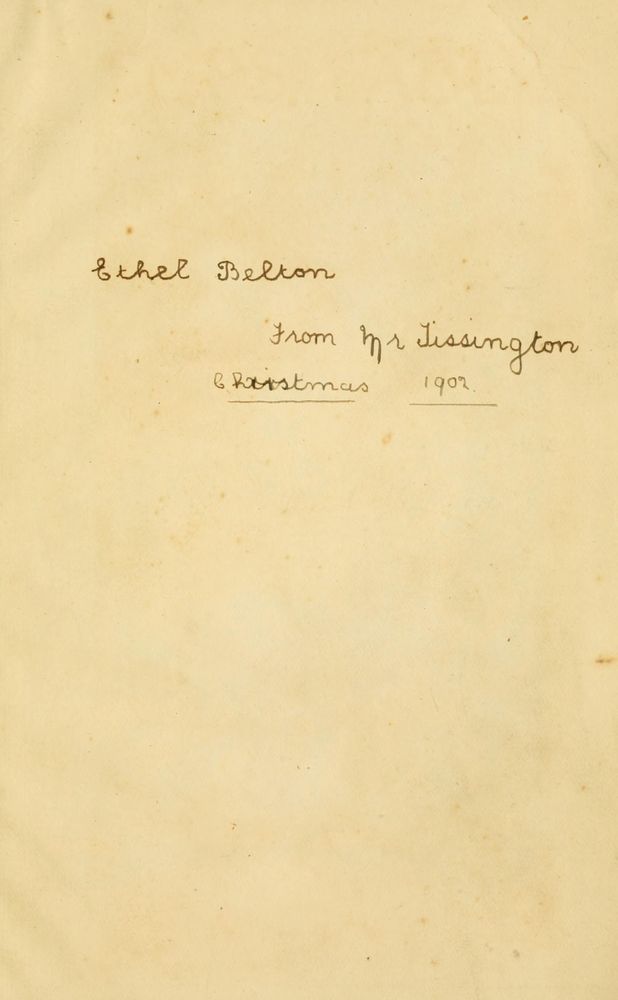 Ethel Belton
From Mr Tissington
Christmas 1902.